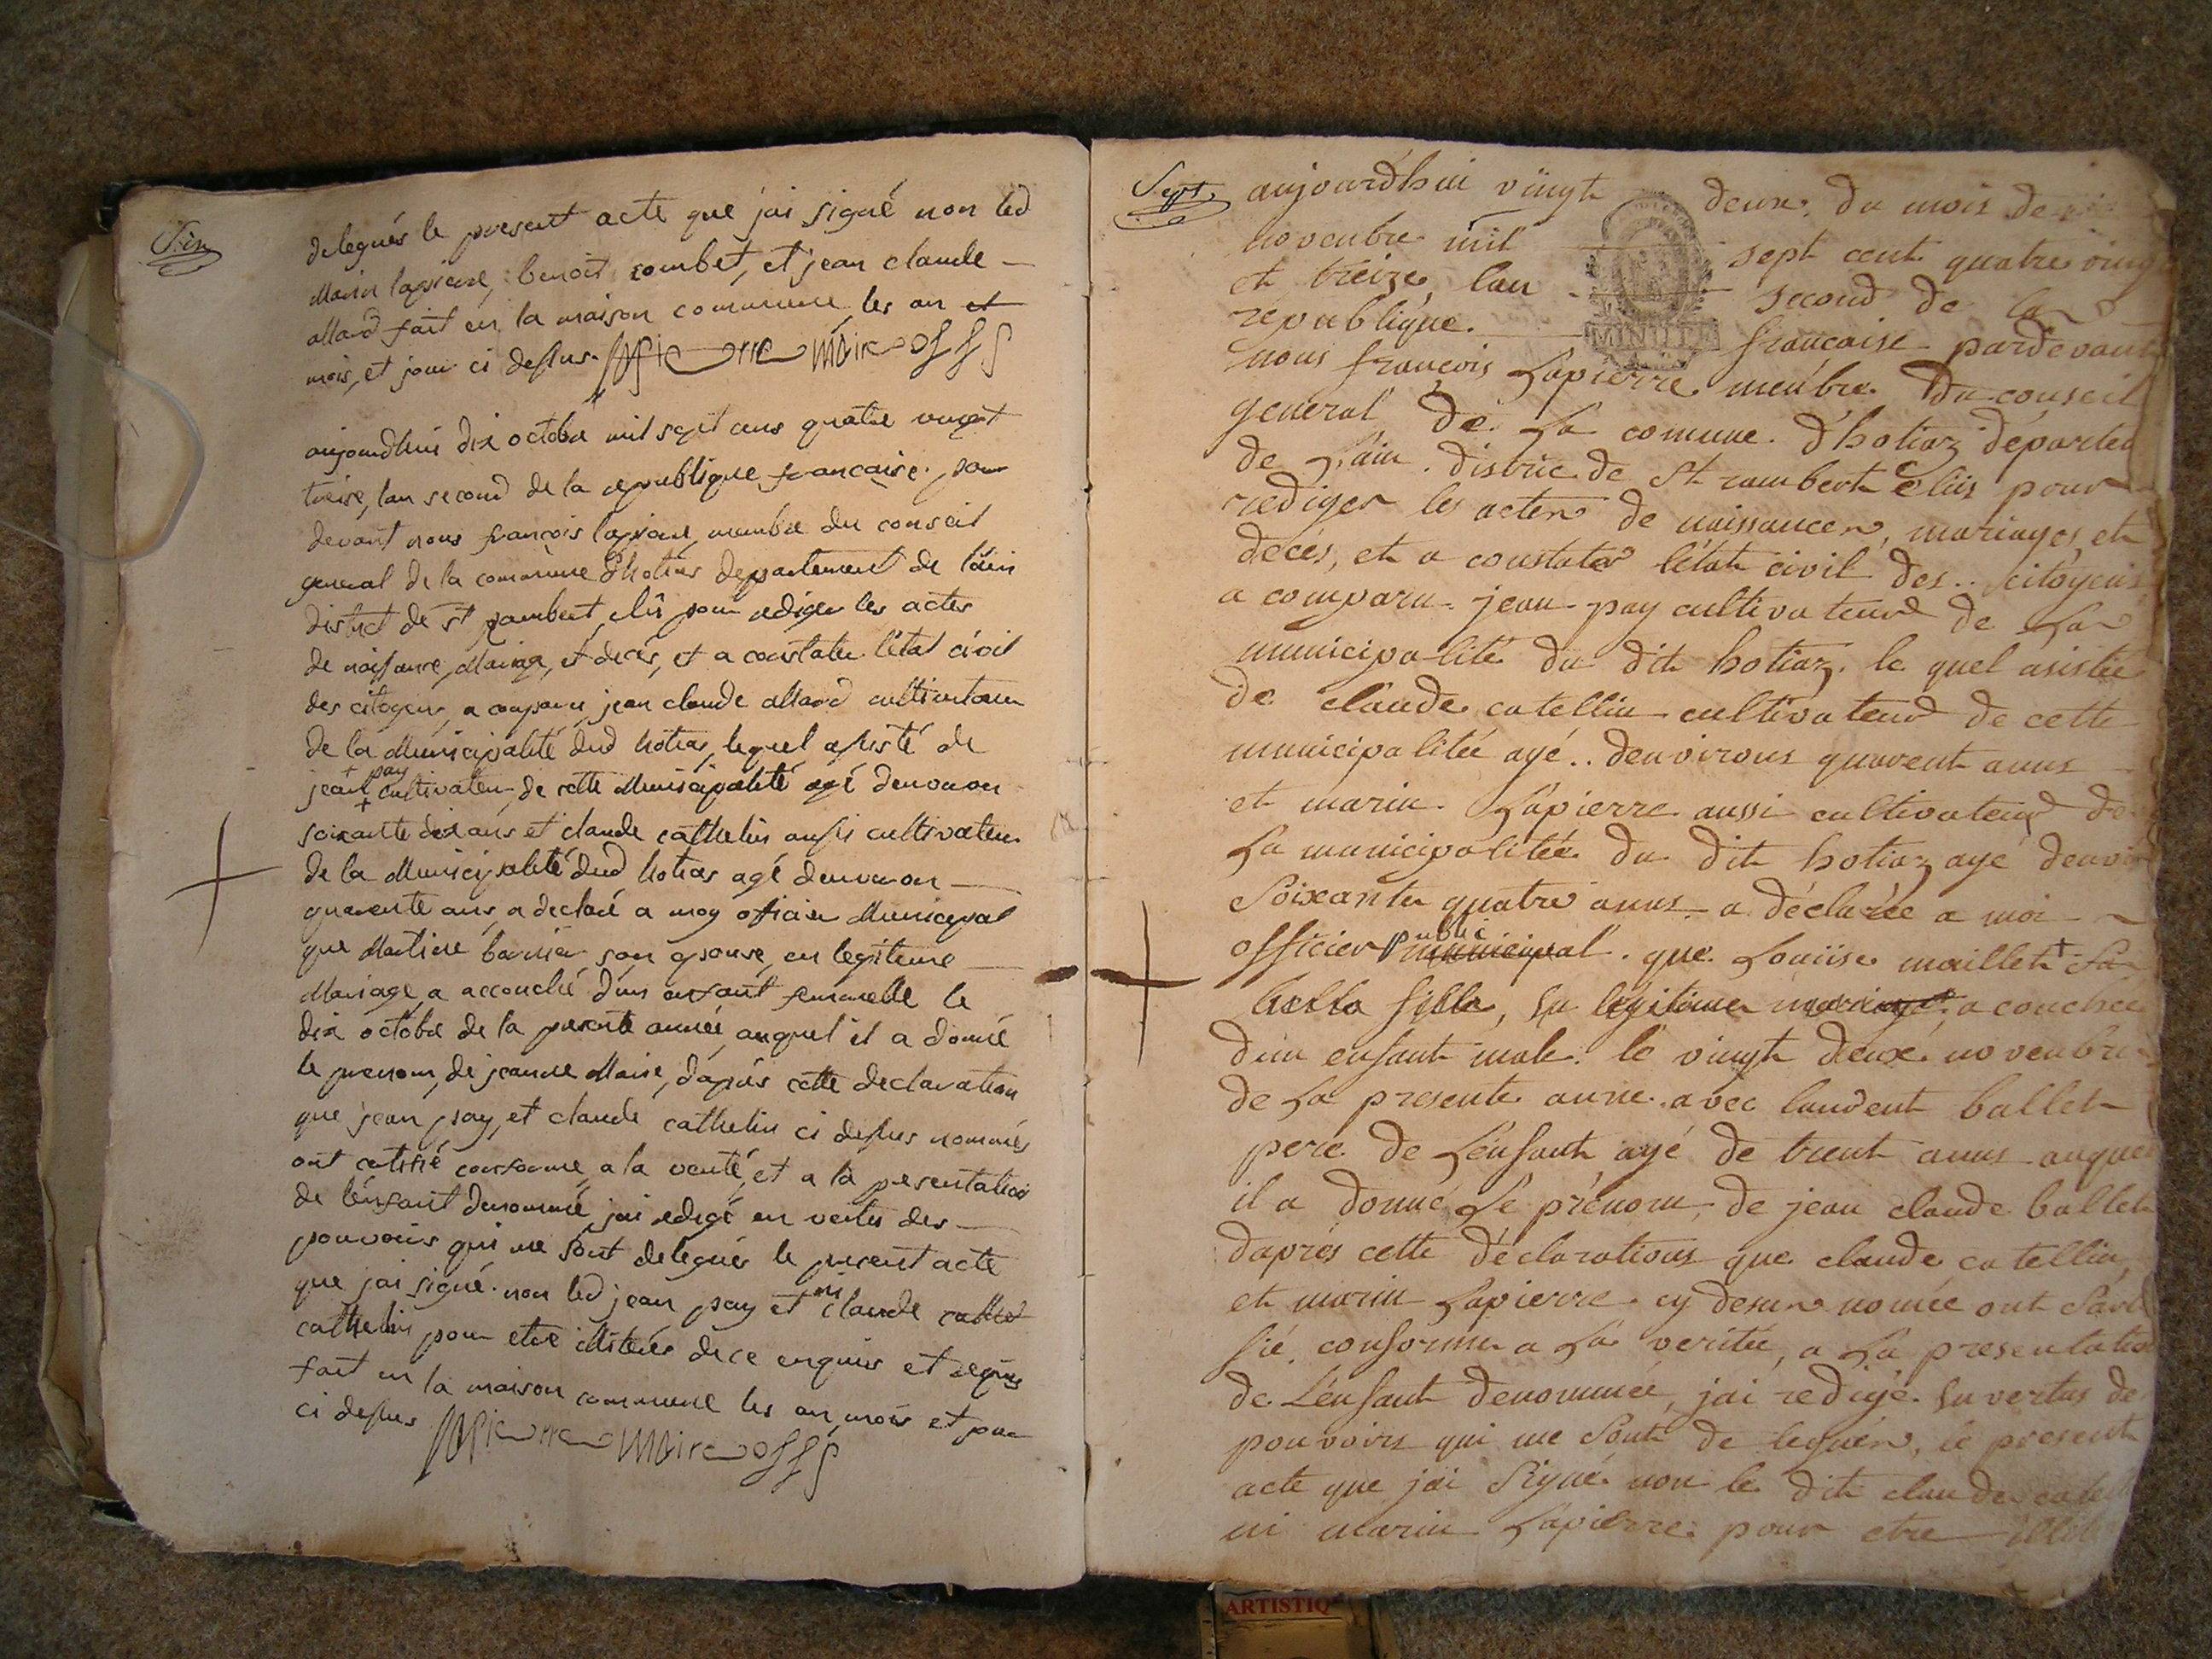 Six
delegués le present acte que jai signé non led
Marin lapierre, benoit combet, et jean claude
allard fait en la maison commune les an et
mois, et jour ci dessus. lapierre maire off p
aujourdhui dix octobre mil sept cens quatre vingt
treise, lan second de la republique francaise. par
devant nous francois lapierre, membre du conseil
general de la commune d'hotias departement de l'ain
district de st rambert, elû pour rediger les actes
de naissance, Mariage, et deces, et a constater l'etat civil
des citoyens, a comparu jean claude allard cultivateur
de la Municipalité dud hotias, lequel assisté de
jean + pay + cultivateur, de cette Municipalité agé denviron
soixante dix ans et claude cathelin aussi cultivateur
de la Municipalité dud hotias agé denviron
quarente ans, a declaré a moy oficier Municipal
que Martiene barrier son epouse, en legitime
Mariage, a accouché d'un enfant femmelle le
dix octobre de la presente année, auquel il a donné
le prenom, de jeanne Marie, d'aprés cette declaration
que jean pay, et claude cathelin ci dessus nommés
ont certifié conforme, a la verité, et a la presentation
de l'enfant denommé, jai redigé en vertu des
pouvoirs qui me sont delegués le present acte
que jai signé. non led jean pay et ni claude cathel
cathelin pour etre illiterés de ce enquis et requis
fait en la maison commune les an, mois et jour
ci dessus lapierre maire off p
Sept
aujourdhui vingt deux, du mois de
novembre mil sept cent quatre ving
et treize, lan second de la
republique. francaise pardevant
MINUTE
nous françois Lapierre menbre. du conseil
general de La comune. d'hotiaz départem
de L'ain. distric de St rambert élus pour
rediger les acten de naissancen, mariages, et
décés, et a constater l'état civil des.. citoyens
a comparu. jean pay cultivateur de La
municipalité du dit hotiaz. le quel asistée
de claude catellin cultivateur de cette
municipalitée agé.. denvirons quarent anns
et marin. Lapierre aussi cultivateur de
La municipalitée du dit hotiaz agé denvir
Soixante quatre anns a déclarée a moi
officier public municipal. que. Louiise maillet + Sa
belle fille, En légitime mariage, a couchée
dun enfant male. le vingt deux. novenbre
de La presente anne. avec laudent ballet
pere de L'enfant agé de trent anns auquel
il a donné Le prénom, de jean claude ballet
d'apres cette déclarations que claude catellin,
et marin Lapierre. cy desun nomée ont Serti
fié. conforme a La veritée, a La presentation
de. L'enfant denommée, jai redigé. En vertus de
pouvoirs qui me Sont de leguén, le present
acte que jai Signé. non le dit claude catel
ni marin Lapierre. pour etre illit
ARTISTIQ